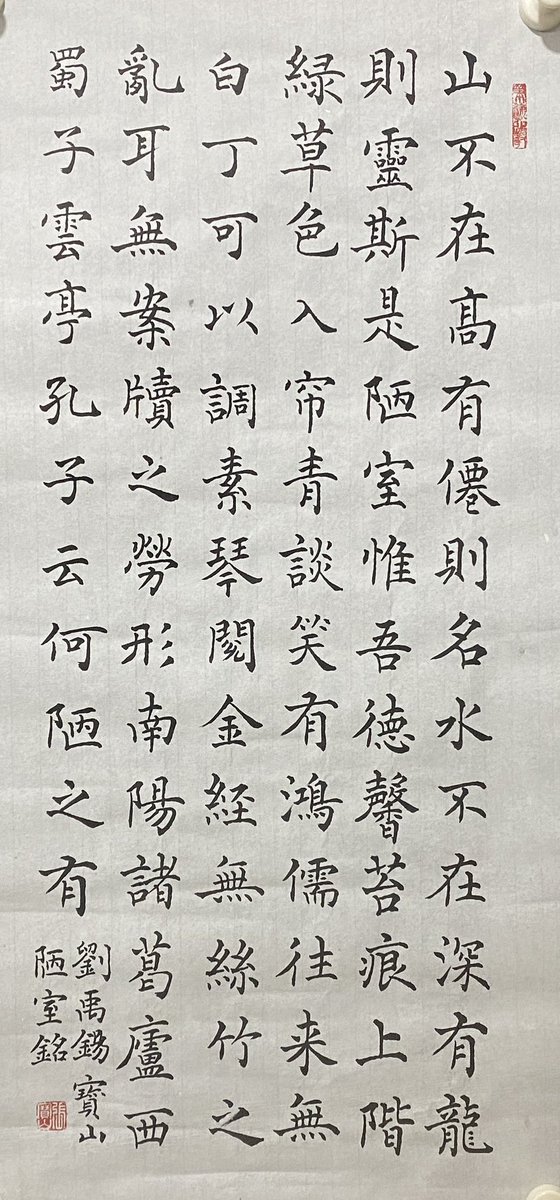 山不在髙有僊則名水不在深有龍
則靈斯是陋室惟吾德馨苔痕上階
緑草色入帘青談笑有鴻儒往来無
白丁可以調素琴閲金経無絲竹之
亂耳無案牘之勞形南陽諸葛廬西
蜀子雲亭孔子云何陋之有
劉禹錫寶山
陋室銘